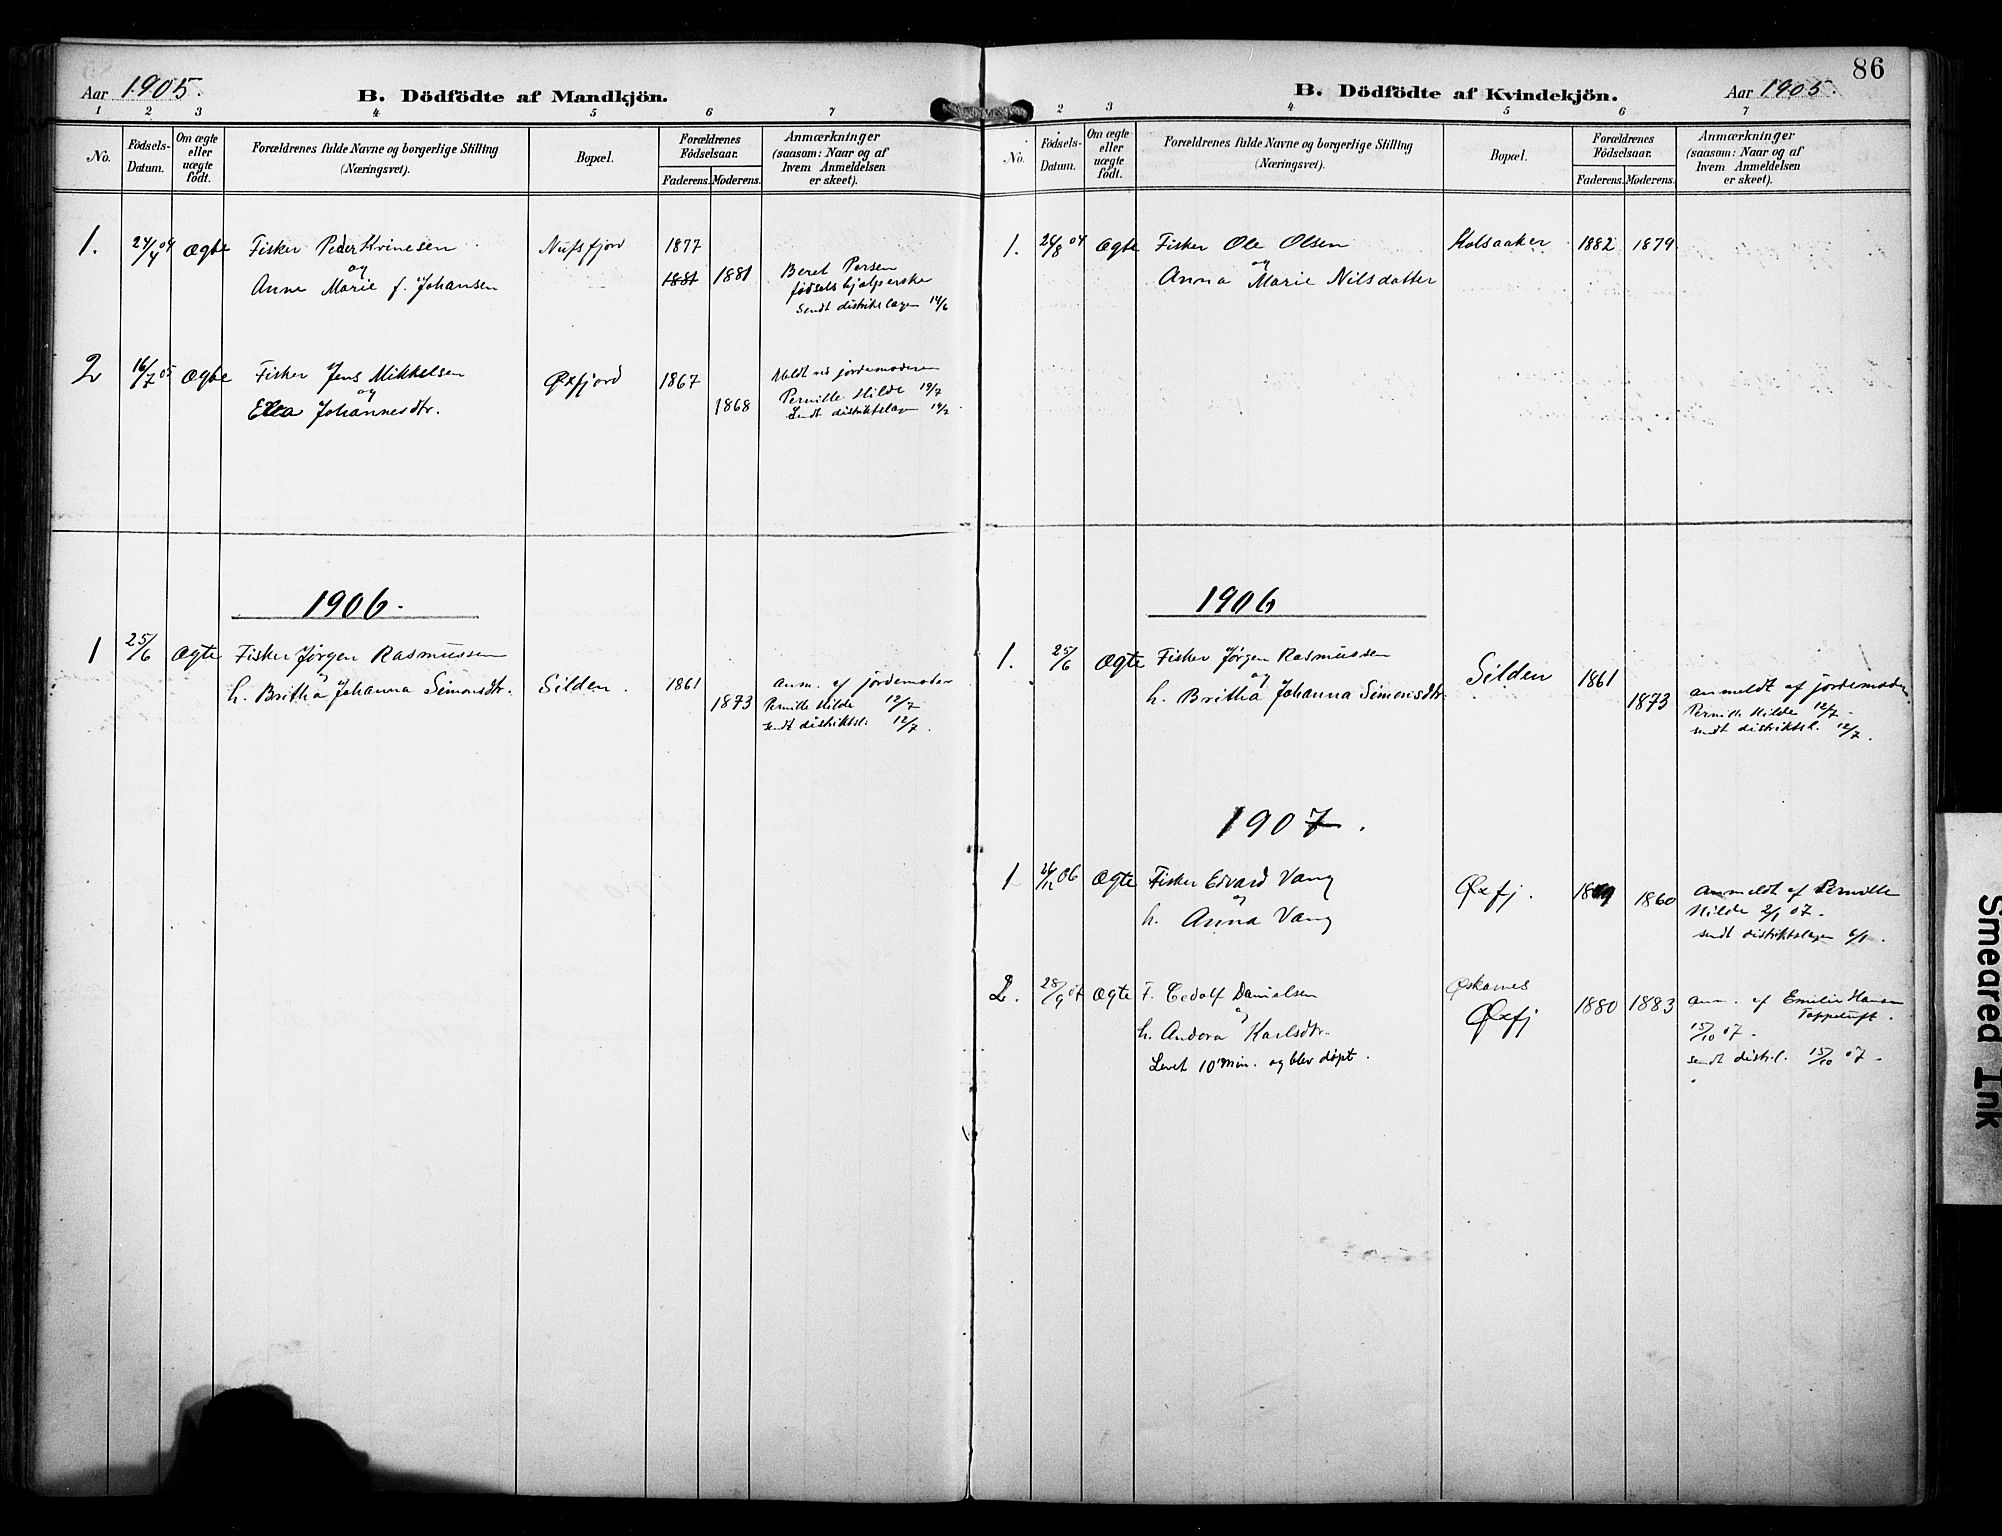 Aar 1905.
B. Dödfödte af Mandkjön.
1 2 3 4 5 6 7
No.
Födsels-
Datum.
Om ægte
eller
uægte
födt.
Forældrenes fulde Navne og borgerlige Stilling
(Næringsvei).
Bopæl.
Forældrenes
Födselsaar.
Faderens. Moderens.
Anmærkninger
(saasom: Naar og af
hvem Anmeldelsen
er skeet).
1. 24/4 04 Ægte Fisker Peder Krinesen Nufsfjord 1877
og
Anne Marie f. Johansen 1881 1881
Beret Persen
fødselshjælperske
Sendt distriktslægen 14/6
2 16/7 05 Ægte Fisker Jens Mikkelsen Øxfjord 1867
og
Ellea Johannesdtr. 1868
Meldt ved jordemoderen
Pernille Hilde 19/7
Sendt distriktslægen 19/7
1906.
1 25/6 Ægte Fisker Jørgen Rasmussen
h. Britha Johanna Simonsdtr. Silden. 1861 1873
anm. af jordemoder
Pernille Hilde 12/7
sendt distriktsl. 12/7.
86
B. Dödfödte af Kvindekjön.
Aar 1905.
2 3 4 5 6 7
No.
Födsels-
Datum.
Om ægte
eller
uægte
födt.
Forældrenes fulde Navne og borgerlige Stilling
(Næringsvei).
Bopæl.
Forældrenes
Födselsaar.
Faderens. Moderens.
Anmærkninger
(saasom: Naar og af
hvem Anmeldelsen
er skeet).
1. 26/8 04 Ægte Fisker Ole Olsen Kolsaaker 1882 1879
og
Anna Marie Nilsdatter
1906
1. 25/6 Ægte Fisker Jørgen Rasmussen Silden 1861
og
h. Britha Johanna Simonsdtr. 1873
anmeldt af jordemoder
Pernille Hilde 12/7
sendt distriktsl. 12/7.
1907.
1 /12 06 Ægte Fisker Edvard Vang Øxfj. 1860
og
h. Anna Vang
anmeldt af Pernille
Hilde 2/1 07.
sendt distriktslægen 6/1.
2. 28/9 07 Ægte F. Danielsen
og
h. Andora Karlsdtr.
Levet 10 min. og blev døpt.
Øxfj 1880 1883
anm. af Emilie Hansen
15/10 07.
sendt distr.l. 15/10 07.
Smeared Ink